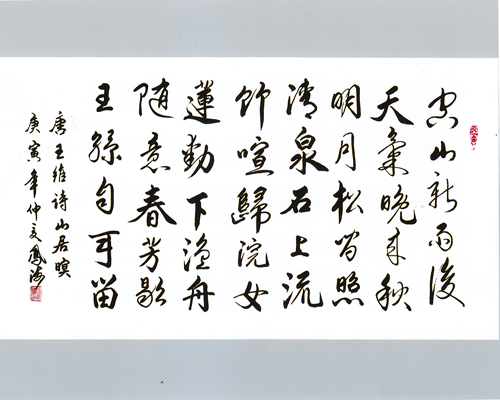 空山新雨後
天氣晚来秋
明月松间照
清泉石上流
竹喧歸浣女
蓮動下渔舟
随意春芳歇
王孫自可留
唐王維詩山居暝
庚寅年仲夏鳳海